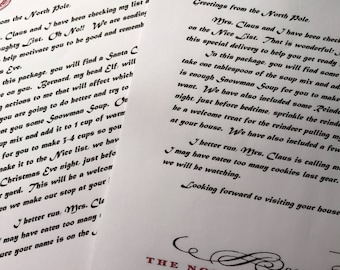 North Pole.
Claus and I have been checking my list
aughty List. Oh No!! We are sending
help motivate you to be good and remem
Eve.
this package, you will find a Santa C
you. Bernard, my head Elf, wil
actions to are that will affect which
you do going to do better and try to
Snowman Soup. On
mix and add it to 1 cup of warm
for you to make 3-4 cups so you
make it to the Nice list, we hav
Christmas Eve night, just before
yard. This will be a welcome
we make our stop at your
I better run, Mrs. Clau
may have eaten too many
ure your name is on the
Greetings from the North Pole.
Mrs. Claus and I have been checking m
on the Nice List. That is wonderful.
this special delivery to help you get ready
In this package, you will find some
take one tablespoon of the soup mix and add
is enough Snowman Soup for you to make
want. We have also included some Reinde
night, just before bedtime, sprinkle the reinde
be a welcome treat for the reindeer pulling m
at your house. We have also included a few
I better run, Mrs. Claus is calling m
I may have eaten too many cookies last year.
we will be watching.
Looking forward to visiting your house
THE NO